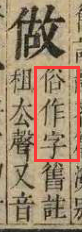 做
俗作字舊註
租厺聲又音